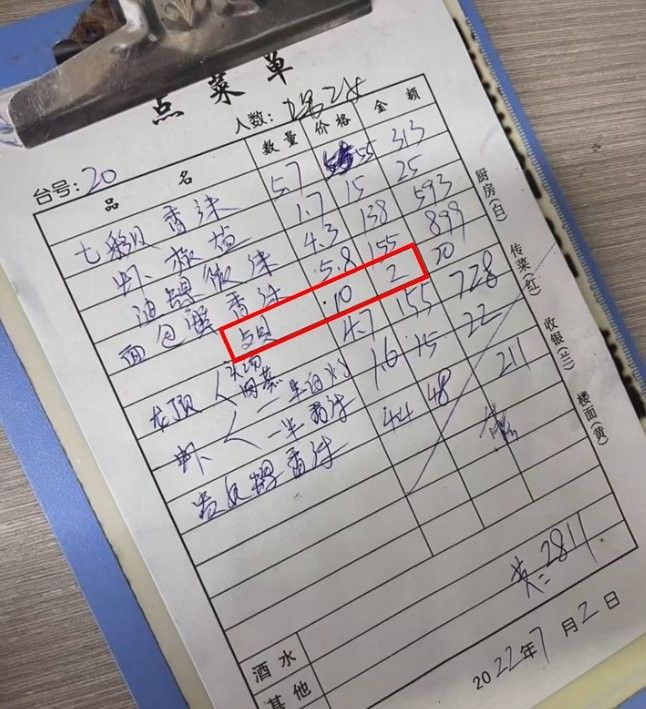 点菜单
台号: 20 人数:
品名 数量 价格 金额
七彩贝 香沫 5.7 55 313
虾 椒盐 1.7 15 25
油螺 4.3 138 593
面包蟹香沫 5.8 155 899
10 2 20
龙 头 4.7 155 728
虾 一半白灼 1.6 15 22
一半香沫
香沫 4.4 48 211
共: 2811
酒水
其他
2022年7月2日
厨房(白) 传菜(红) 收银(兰) 楼面(黄)